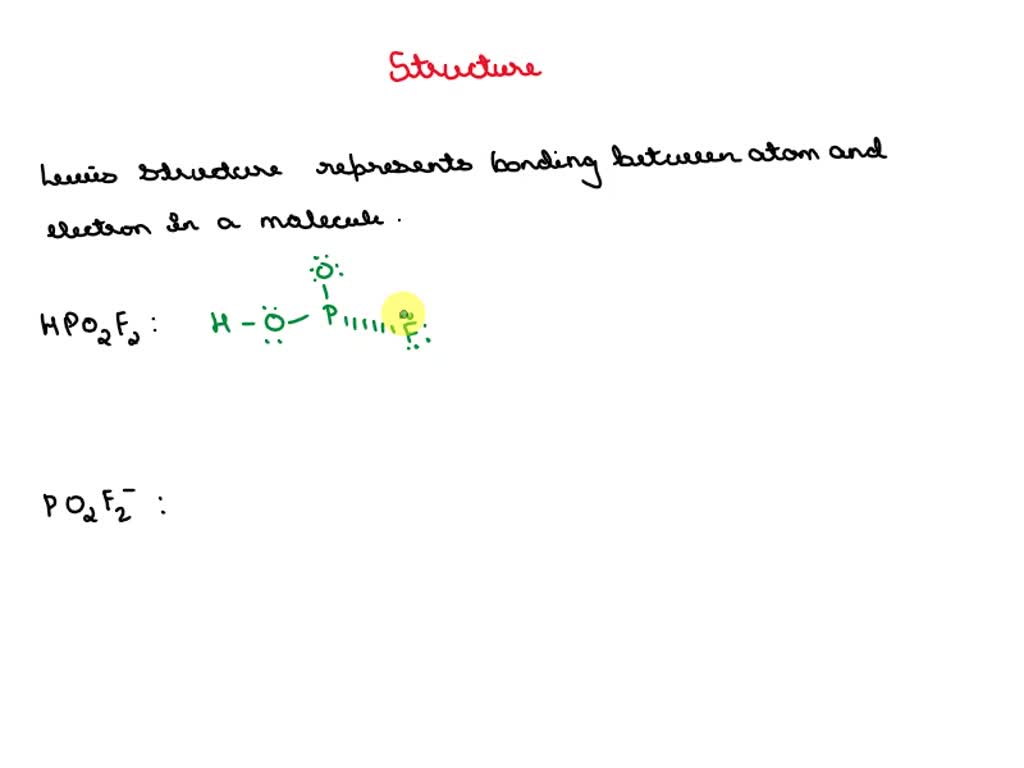 Structure
Lewis structure represents bonding between atom and
electron in a molecule.
HPO2F2 : H - O - P F O
PO2F2- :